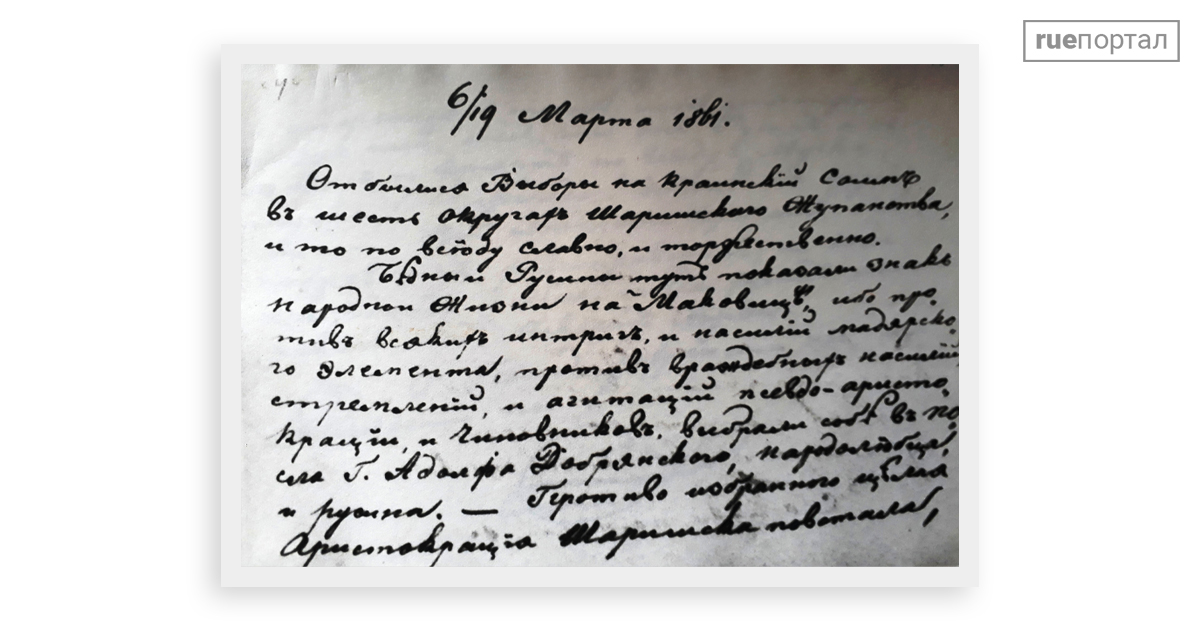 rueпортал
6/19 Марта 1861.
Отбылися Выборы на краинскій Соимъ
въ шесть округахъ Шаришского Жупанства,
и то по всюду славно, и торжественно.
Бѣдныи Русины тутъ показали знакъ
народнои Жизни на "Маковицѣ", ибо про
тивъ всякихъ интригъ, и насилій мадярско
го Элемента, противъ враждебныхъ насилій
стремленій, и агитацій псевдо-аристо
краціи, и Чиновниковъ, выбрали собѣ въ по
сла Г. Адольфа Добрянского, народолюбца,
и русина. — Противо избранного цѣлая
Аристокрація Шаришска повстала,